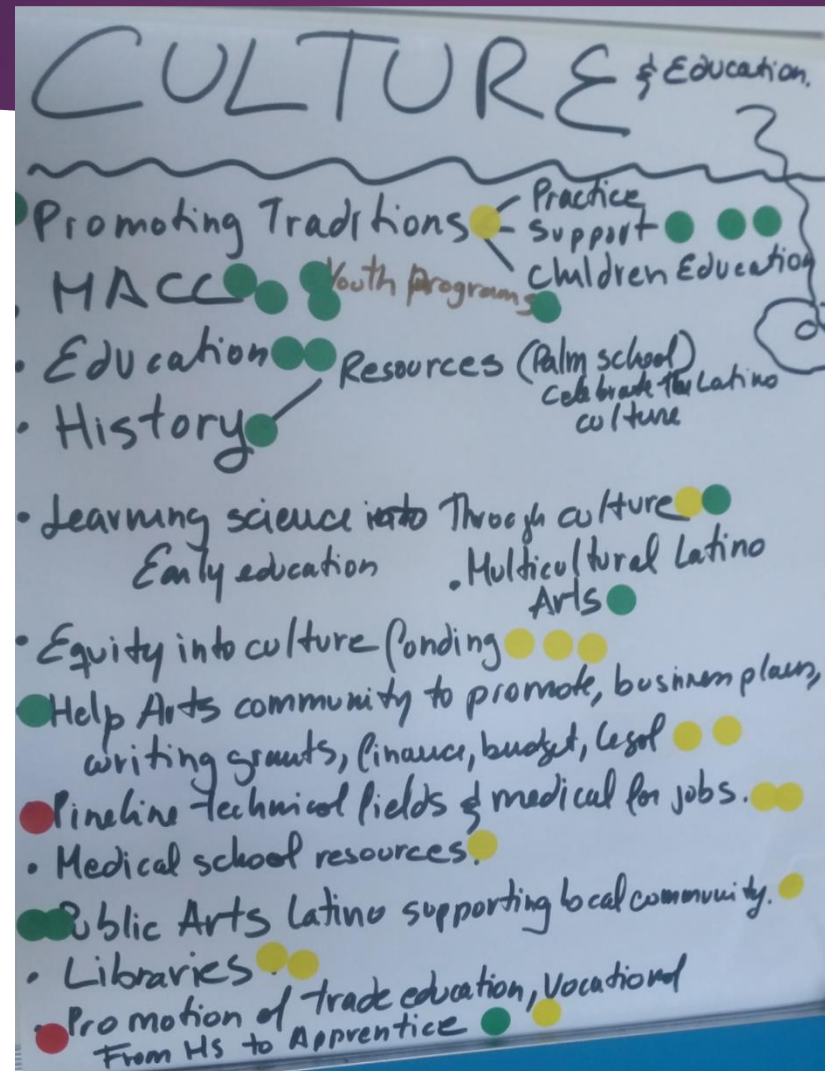 CULTURE & Education.
Promoting Traditions
Practice
Support
Children Education
MACC
Youth programs
Education
Resources (Palm school)
Celebrate The Latino
culture
History
Learning science into Through culture
Early education
Multicultural Latino
Arts
Equity into culture funding
Help Arts community to promote, business plans,
writing grants, finance, budget, legal
Pineline technical fields & medical for jobs.
Medical school resources.
Public Arts Latino supporting local community.
Libraries.
Promotion of trade education, Vocational
From HS to Apprentice